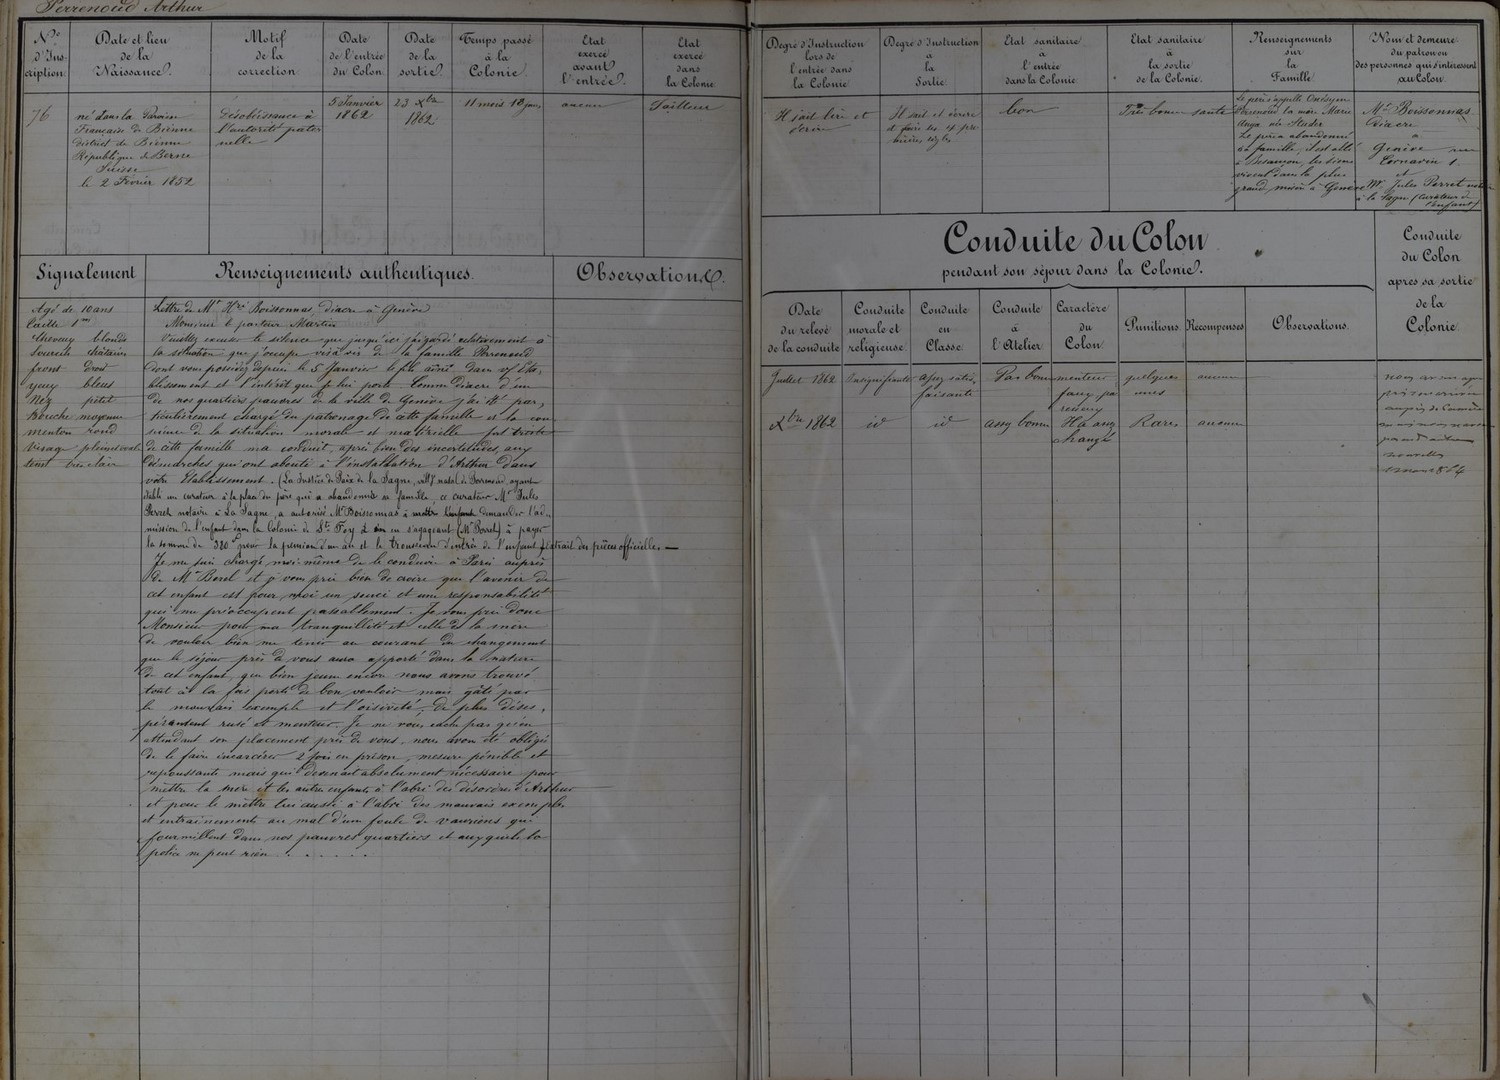 Perrenoud Arthur
N.º d'Inscription
Date et lieu de la Naissance.
Motif de la correction
Date de l'entrée du Colon.
Date de la sortie.
Temps passé à la Colonie.
Etat exercé avant l'entrée.
Etat exercé dans la Colonie
76
né dans la Paroisse
Française de Bienne
district de Bienne
République de Berne
Suisse
le 2 Février 1852
Désobéissance à
l'autorité pater
nelle
5 Janvier
1862
23 Xbre
1862
11 mois 18 jours
aucun
Tailleur
Signalement
Renseignements authentiques.
Observations.
Agé de 10 ans
Taille 1m
Cheveux blonds
Sourcils châtains
front droit
yeux bleus
Nez petit
Bouche moyenne
menton rond
Visage plein ovale
teint très clair
Lettre de Mr Hri Boissonnas, diacre à Genève
Monsieur le pasteur Martin
Veuillez excuser le silence que jusqu'ici j'ai gardé relativement à
la situation que j'occupe vis à vis de la famille Perrenoud
dont vous possédez depuis le 5 Janvier le fils aîné dans v/ éta-
blissement et l'intérêt que je lui porte. Comme Diacre d'un
de nos quartiers pauvres de la ville de Genève j'ai été par,
ticulièrement chargé du patronage de cette famille et la con
science de la situation morale et matérielle fort triste
de cette famille m'a conduit, après bien des incertitudes, aux
démarches qui ont abouti à l'installation d'Arthur dans
votre Etablissement. (La Justice de Paix de la Sagne, natal de Perrenoud, ayant
établi un curateur à la place du père qui a abandonné sa famille, ce curateur Mr Jules
Perret notaire à La Sagne, a autorisé Mr Boissonnas à mettre l'enfant demander l'ad-
mission de l'enfant dans la Colonie de Ste Foy à en s'engageant (Mr Perret) à payer
la somme de 380f pour la pension d'un an et le trousseau d'entrée de l'enfant) extrait des pièces officielles. —
Je me suis chargé moi-même de le conduire à Paris auprès
de Mr Borel et je vous prie bien de croire que l'avenir de
cet enfant est pour moi un souci et une responsabilité
qui me préoccupent passablement. Je vous prie donc
Monsieur pour ma tranquillité et celle de la mère
de vouloir bien me tenir au courant du changement
que le séjour près de vous aura apporté dans la nature
de cet enfant, que bien jeune encore nous avons trouvé
tout à la fois porté de bon vouloir mais gâté par
le mauvais exemple et l'oisiveté, de plus déses,
pérament rusé et menteur. Je ne vous cache pas qu'en
attendant son placement près de vous, nous avons été obligés
de le faire incarcérer 2 fois en prison, mesure pénible et
repoussante mais qui devenait absolument nécessaire pour
mettre la mère et les autres enfants à l'abri des désordres d'Arthur
et pour le mettre lui aussi à l'abri des mauvais exemples
et entrainements au mal d'une foule de vauriens qui
fourmillent dans nos pauvres quartiers et auxquels la
police ne peut rien . . . . . .
Degré d'Instruction lors de l'entrée dans la Colonie
Degré d'Instruction à la Sortie.
Etat sanitaire à l'entrée dans la Colonie
Etat sanitaire à la sortie de la Colonie.
Renseignements sur la Famille
Nom et demeure du patron ou des personnes qui s'intéressent au Colon.
Il sait lire et
écrire
Il sait et écrire
et faire les 4 pre
mières règles
bon
Très bonne santé
Le père s'appelle Onésyme
Perrenoud la mère Marie
née Studer
Le père a abandonné
sa famille, il est allé
à Besançon, les siens
vivent dans la plus
grand misère à Genève
Mr Boissonnas
Diacre
à
Genève rue
Cornavin 1.
et
Mr. Jules Perret notaire
à la Sagne (Curateur de
l'enfant)
Conduite du Colon
pendant son séjour dans la Colonie.
Conduite du Colon apres sa sortie de la Colonie
Date du relevé de la conduite
Conduite morale et religieuse
Conduite en Classe
Conduite à l'Atelier
Caractère du Colon
Punitions
Recompenses
Observations.
Juillet 1862
Insignifiante
assez satis,
faisante
Pas bonne
menteur
faux pa
resseux
quelques
unes
aucune
Xbre 1862
id
id
assez bonne
Il a assez
changé
Rares
aucune
nouvelles